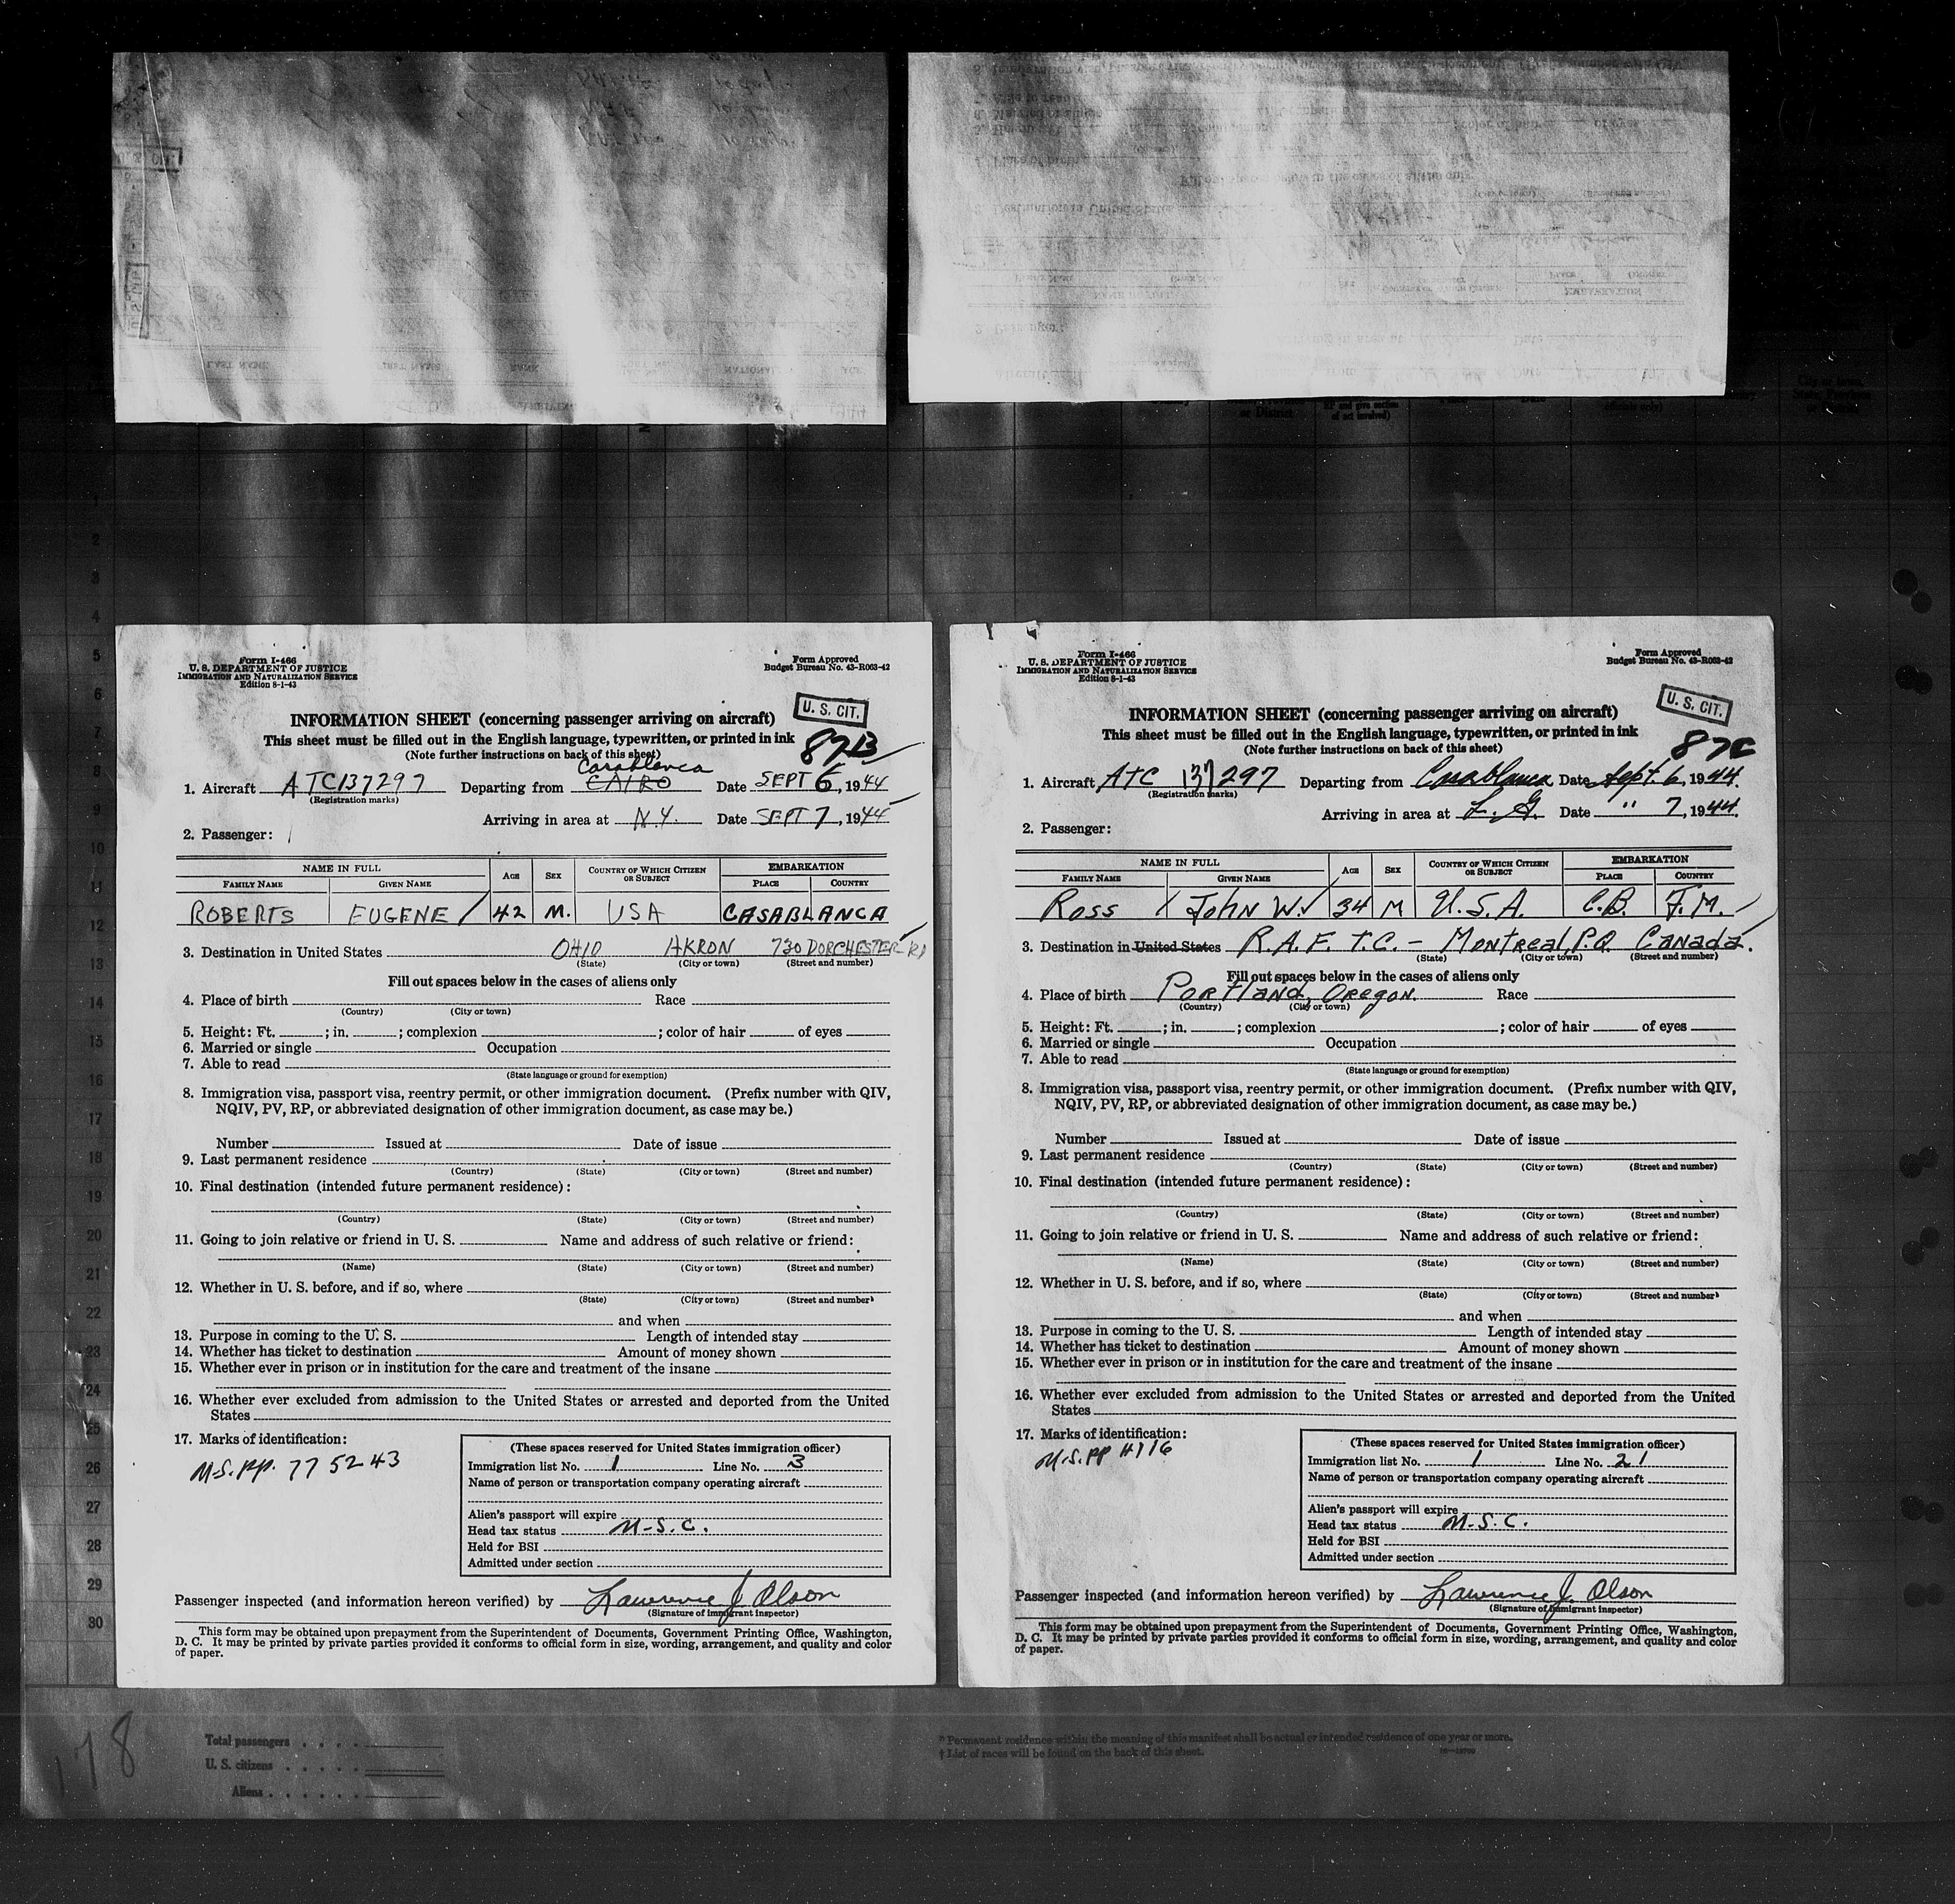 Form I-466
U. S. DEPARTMENT OF JUSTICE
IMMIGRATION AND NATURALIZATION SERVICE
Edition 8-1-43
Form Approved
Budget Bureau No. 43-R063-42
U. S. CIT.
INFORMATION SHEET (concerning passenger arriving on aircraft)
This sheet must be filled out in the English language, typewritten, or printed in ink
87B
(Note further instructions on back of this sheet)
Casablanca
1. Aircraft ATC137297 Departing from CAIRO Date SEPT 6, 1944
(Registration marks)
Arriving in area at N.Y. Date SEPT 7, 1944
2. Passenger:
NAME IN FULL AGE SEX COUNTRY OF WHICH CITIZEN OR SUBJECT EMBARKATION
FAMILY NAME GIVEN NAME PLACE COUNTRY
ROBERTS EUGENE 42 M. USA CASABLANCA
3. Destination in United States OHIO AKRON 730 DORCHESTER RD
(State) (City or town) (Street and number)
Fill out spaces below in the cases of aliens only
4. Place of birth Race
(Country) (City or town)
5. Height: Ft. ; in. ; complexion ; color of hair of eyes
6. Married or single Occupation
7. Able to read
(State language or ground for exemption)
8. Immigration visa, passport visa, reentry permit, or other immigration document. (Prefix number with QIV,
NQIV, PV, RP, or abbreviated designation of other immigration document, as case may be.)
Number Issued at Date of issue
9. Last permanent residence
(Country) (State) (City or town) (Street and number)
10. Final destination (intended future permanent residence):
(Country) (State) (City or town) (Street and number)
11. Going to join relative or friend in U. S. Name and address of such relative or friend:
(Name) (State) (City or town) (Street and number)
12. Whether in U. S. before, and if so, where
(State) (City or town) (Street and number)
and when
13. Purpose in coming to the U. S. Length of intended stay
14. Whether has ticket to destination Amount of money shown
15. Whether ever in prison or in institution for the care and treatment of the insane
16. Whether ever excluded from admission to the United States or arrested and deported from the United
States
17. Marks of identification:
M.S. pp. 775243
(These spaces reserved for United States immigration officer)
Immigration list No. 1 Line No. 3
Name of person or transportation company operating aircraft
Alien's passport will expire
Head tax status M-S.C.
Held for BSI
Admitted under section
Passenger inspected (and information hereon verified) by Lawrence J. Olson
(Signature of immigrant inspector)
This form may be obtained upon prepayment from the Superintendent of Documents, Government Printing Office, Washington,
D. C. It may be printed by private parties provided it conforms to official form in size, wording, arrangement, and quality and color
of paper.
Form I-466
U. S. DEPARTMENT OF JUSTICE
IMMIGRATION AND NATURALIZATION SERVICE
Edition 8-1-43
Form Approved
Budget Bureau No. 43-R063-42
U. S. CIT.
INFORMATION SHEET (concerning passenger arriving on aircraft)
This sheet must be filled out in the English language, typewritten, or printed in ink
87C
(Note further instructions on back of this sheet)
1. Aircraft ATC 137297 Departing from Casablanca Date Sept. 6, 1944.
(Registration marks)
Arriving in area at L. G. Date " 7, 1944.
2. Passenger:
NAME IN FULL AGE SEX COUNTRY OF WHICH CITIZEN OR SUBJECT EMBARKATION
FAMILY NAME GIVEN NAME PLACE COUNTRY
ROSS JOHN W. 34 M U.S.A. C.B. F.M.
3. Destination in United States R.A.F.T.C. - MONTREAL, P.Q. CANADA.
(State) (City or town) (Street and number)
Fill out spaces below in the cases of aliens only
4. Place of birth PORTLAND, OREGON. Race
(Country) (City or town)
5. Height: Ft. ; in. ; complexion ; color of hair of eyes
6. Married or single Occupation
7. Able to read
(State language or ground for exemption)
8. Immigration visa, passport visa, reentry permit, or other immigration document. (Prefix number with QIV,
NQIV, PV, RP, or abbreviated designation of other immigration document, as case may be.)
Number Issued at Date of issue
9. Last permanent residence
(Country) (State) (City or town) (Street and number)
10. Final destination (intended future permanent residence):
(Country) (State) (City or town) (Street and number)
11. Going to join relative or friend in U. S. Name and address of such relative or friend:
(Name) (State) (City or town) (Street and number)
12. Whether in U. S. before, and if so, where
(State) (City or town) (Street and number)
and when
13. Purpose in coming to the U. S. Length of intended stay
14. Whether has ticket to destination Amount of money shown
15. Whether ever in prison or in institution for the care and treatment of the insane
16. Whether ever excluded from admission to the United States or arrested and deported from the United
States
17. Marks of identification:
M.S. pp
(These spaces reserved for United States immigration officer)
Immigration list No. 1 Line No. 21
Name of person or transportation company operating aircraft
Alien's passport will expire
Head tax status M-S.C.
Held for BSI
Admitted under section
Passenger inspected (and information hereon verified) by Lawrence J. Olson
(Signature of immigrant inspector)
This form may be obtained upon prepayment from the Superintendent of Documents, Government Printing Office, Washington,
D. C. It may be printed by private parties provided it conforms to official form in size, wording, arrangement, and quality and color
of paper.
178
Total passengers
U. S. citizens
Aliens
* Permanent residence within the meaning of this manifest shall be actual or intended residence of one year or more.
† List of races will be found on the back of this sheet.